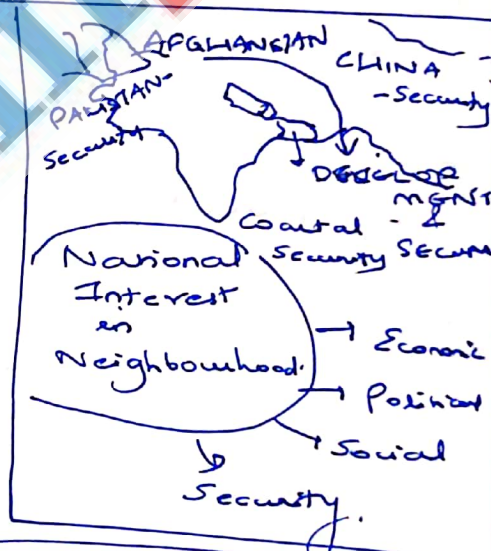 AFGHANSIAN
CHINA
-Security
PAKISTAN-
Security
DEVELOP
MENT
&
Coastal -
Security SECUR
National
Interest
in
Neighbourhood.
→ Economic
→ Political
→ Social
Security.